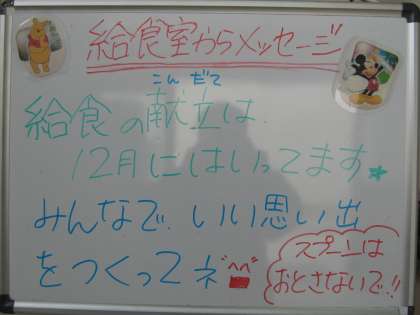 給食室からメッセージ
こんだて
給食の献立は
12月にはいってます
みんなで、いい思い出
をつくってネ
スプーンは
おとさないで!!